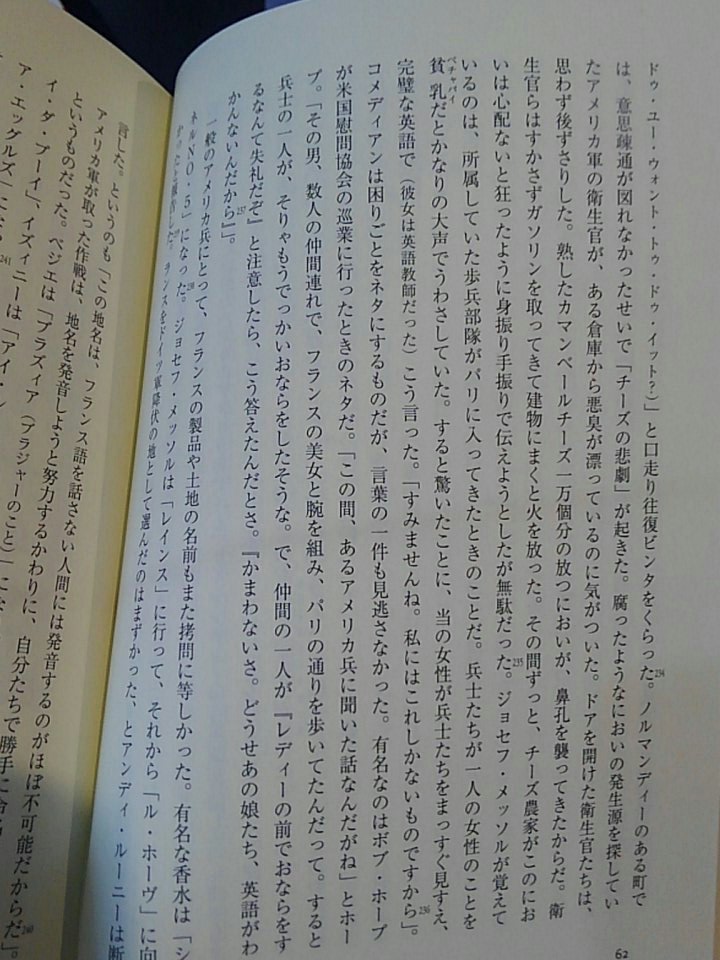 ドゥ・ユー・ウォント・トゥ・ドゥ・イット?)」と口走り往復ビンタをくらった。234 ノルマンディーのある町で
は、意思疎通が図れなかったせいで「チーズの悲劇」が起きた。腐ったようなにおいの発生源を探してい
たアメリカ軍の衛生官が、ある倉庫から悪臭が漂っているのに気がついた。ドアを開けた衛生官たちは、
思わず後ずさりした。熟したカマンベールチーズ一万個分の放つにおいが、鼻孔を襲ってきたからだ。衛
生官らはすかさずガソリンを取ってきて建物にまくと火を放った。その間ずっと、チーズ農家がこのにお
いは心配ないと狂ったように身振り手振りで伝えようとしたが無駄だった。235 ジョセフ・メッソルが覚えて
いるのは、所属していた歩兵部隊がパリに入ってきたときのことだ。兵士たちが一人の女性のことを
貧乳ペチャパイだとかなりの大声でうわさしていた。すると驚いたことに、当の女性が兵士たちをまっすぐ見すえ、
完璧な英語で(彼女は英語教師だった)こう言った。「すみませんね。私にはこれしかないものですから」。236
コメディアンは困りごとをネタにするものだが、言葉の一件も見逃さなかった。有名なのはボブ・ホープ
が米国慰問協会の巡業に行ったときのネタだ。「この間、あるアメリカ兵に聞いた話なんだがね」とホー
プ。「その男、数人の仲間連れで、フランスの美女と腕を組み、パリの通りを歩いてたんだって。すると
兵士の一人が、そりゃもうでっかいおならをしたそうな。で、仲間の一人が『レディーの前でおならをす
るなんて失礼だぞ』と注意したら、こう答えたんだとさ。『かまわないさ。どうせあの娘たち、英語がわ
かんないんだから』」。237
一般のアメリカ兵にとって、フランスの製品や土地の名前もまた拷問に等しかった。有名な香水は「シ
ネルNO・5」になった。238 ジョセフ・メッソルは「レインス」に行って、それから「ル・ホーヴ」に向
ランスをドイツ軍降伏の地として選んだのはまずかった、とアンディ・ルーニーは断
62
言した。というのも「この地名は、フランス語を話さない人間には発音するのがほぼ不可能だからだ」。240
アメリカ軍が取った作戦は、地名を発音しようと努力するかわりに、自分たちで勝手に
というものだった。ベジエは「ブラズィア(ブラジャーのこと)」に
イ・ダ・ブーイ」、イズィニーは「アイ・
ア・エッグルズ」に 241